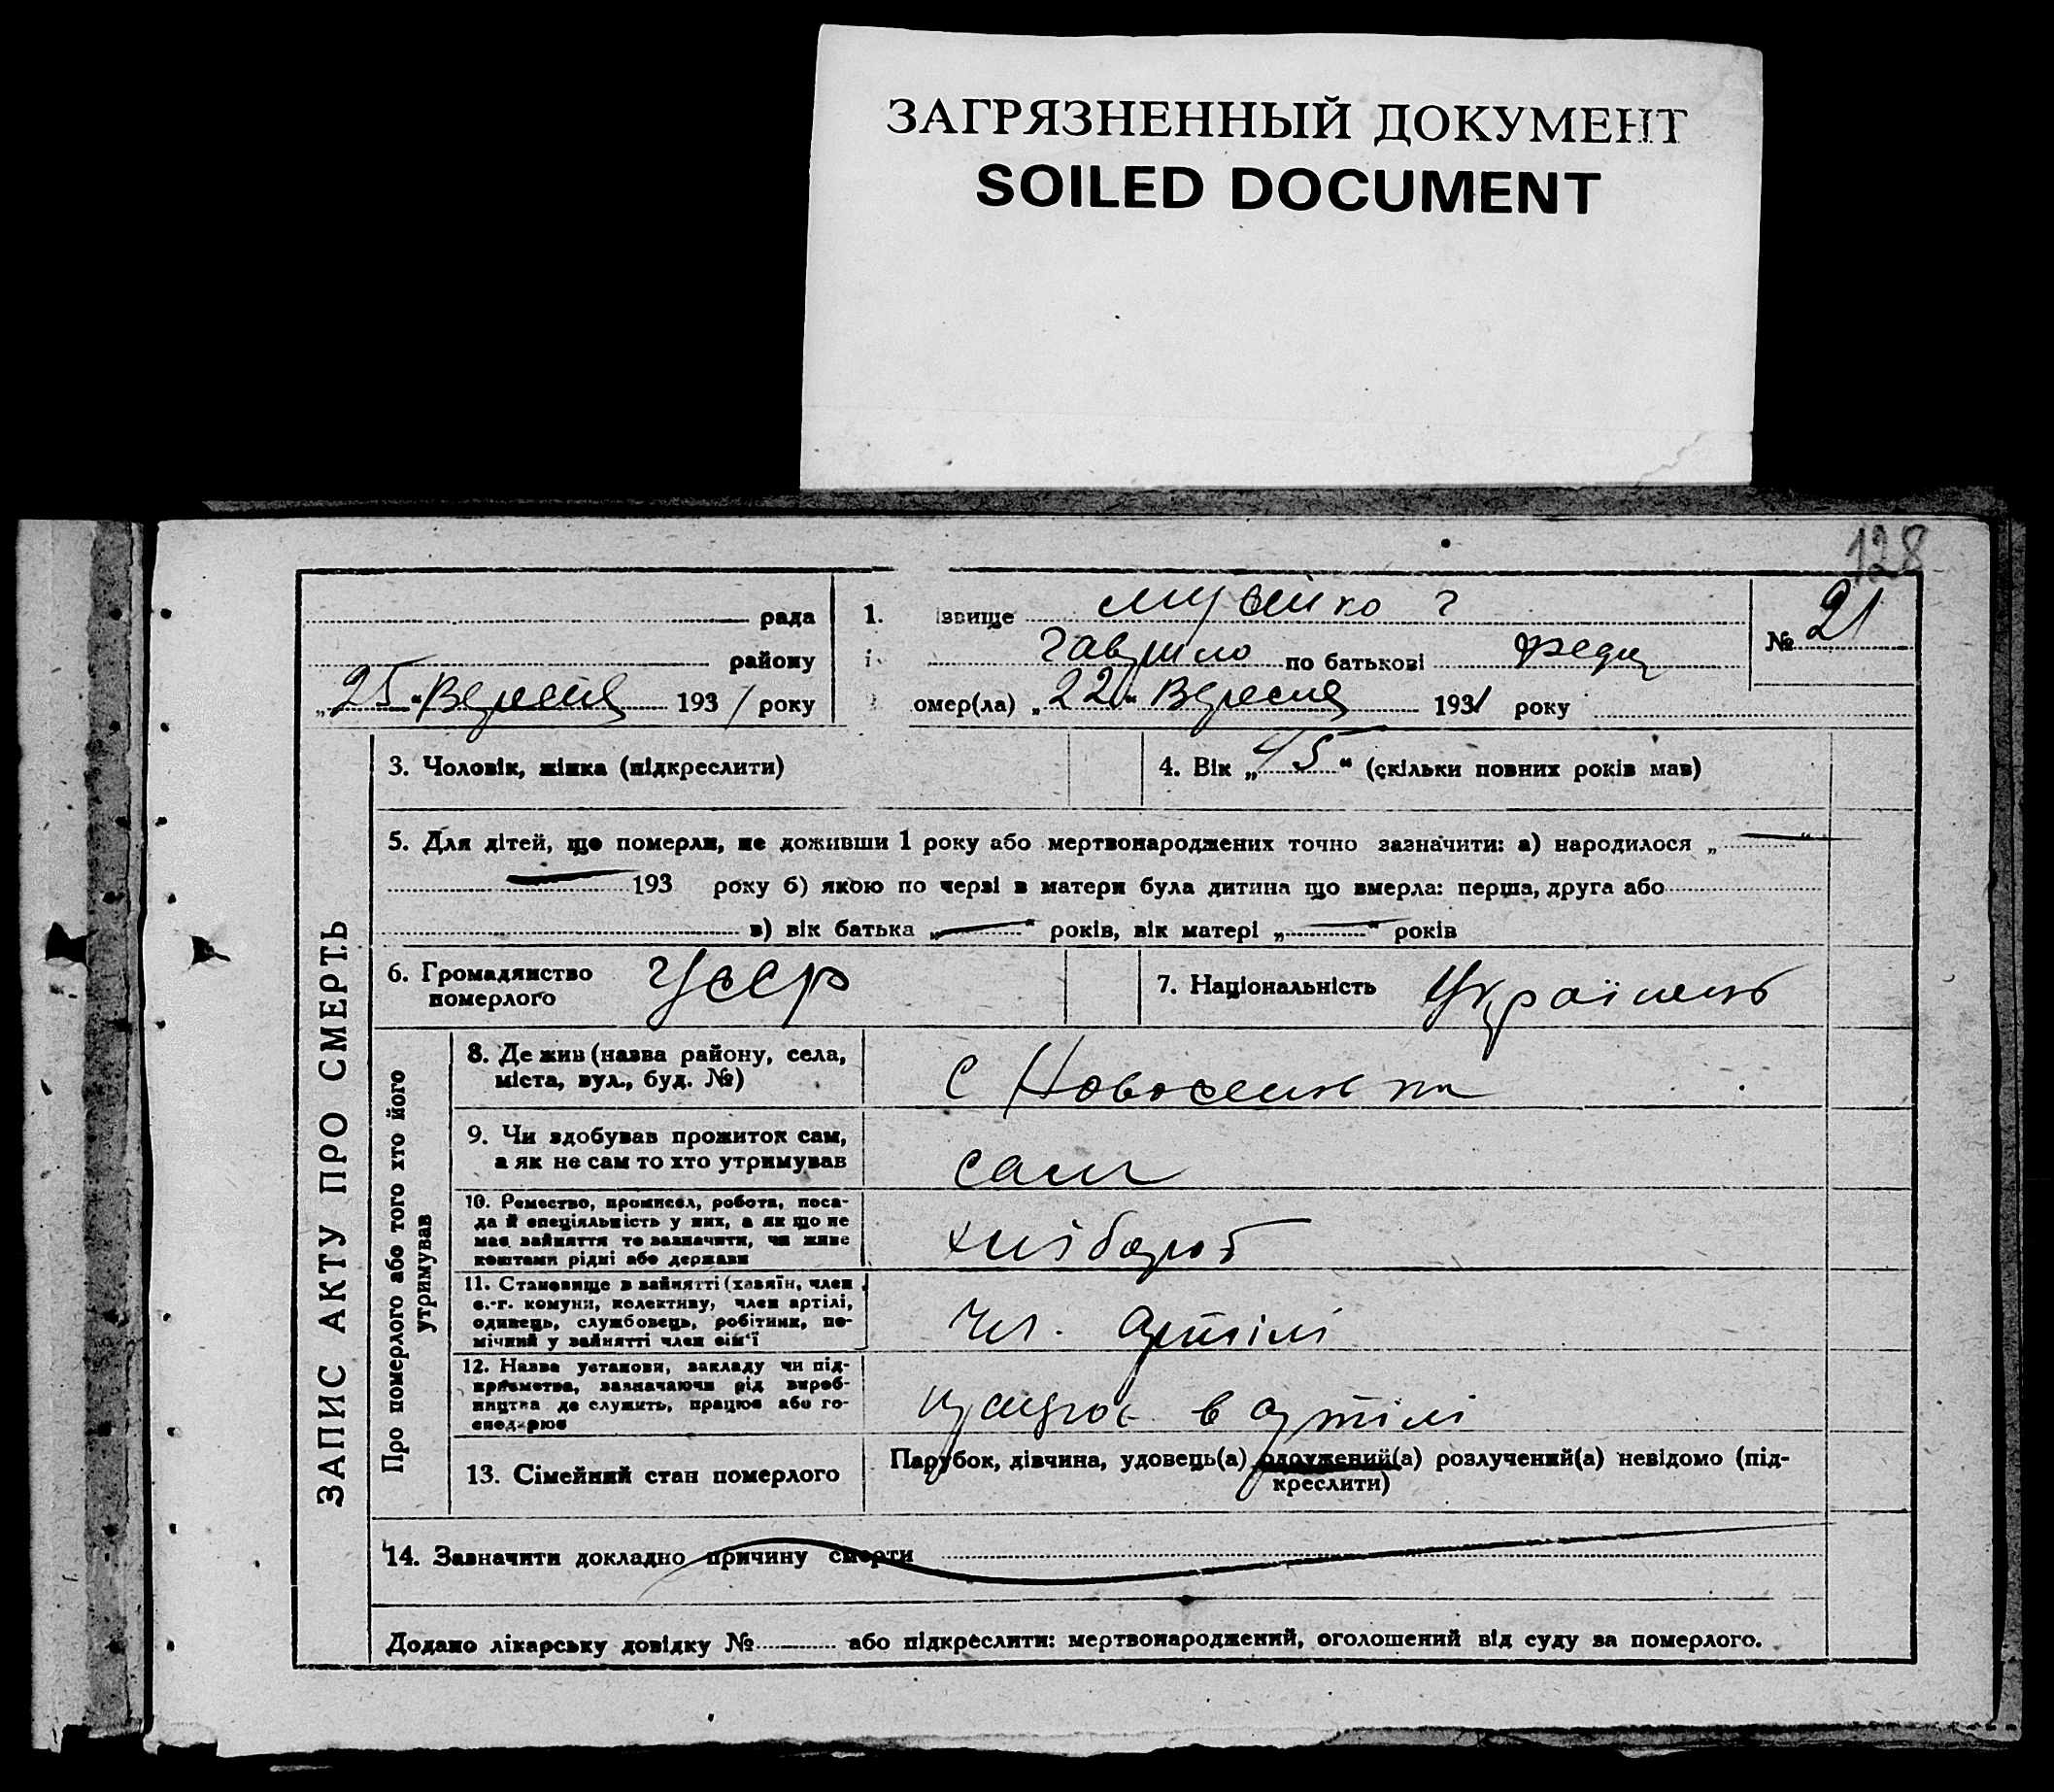 ЗАГРЯЗНЕННЫЙ ДОКУМЕНТ
SOILED DOCUMENT
128
рада
району
„25“ Вересня 1931 року
1. ізвище
Гаврило по батькові Федор
омер(ла) „22“ Вересня 1931 року
№ 21
ЗАПИС АКТУ ПРО СМЕРТЬ
3. Чоловік, жінка (підкреслити)
4. Вік „45“ (скільки повних років мав)
5. Для дітей, що померли, не доживши 1 року або мертвонароджених точно зазначити: а) народилося „ “
193 року б) якою по черзі в матери була дитина що вмерла: перша, друга або
в) вік батька „ “ років, вік матері „ “ років
6. Громадянство
померлого
УССР
7. Національність Українець
Про померлого або того хто його
утримував
8. Де жив (назва району, села,
міста, вул., буд. №)
с Новоселівка
9. Чи здобував прожиток сам,
а як не сам то хто утримував
сам
10. Ремество, промисел, робота, поса-
да й спеціяльність у них, а як що не
має зайняття то зазначити, чи живе
коштами рідні або держави
хлібороб
11. Становище в зайнятті (хазяїн, член
с.-г. комуни, колективу, член артілі,
одинець, службовець, робітник, по-
мічний у зайнятті член сім'ї
чл. артілі
12. Назва установи, закладу чи під-
приємства, зазначаючи рід вироб-
ництва де служить, працює або го-
сподарює
працює в артілі
13. Сімейний стан померлого
Парубок, дівчина, удовець(а) одружений(а) розлучений(а) невідомо (під-
креслити)
14. Зазначити докладно причину смерти
Додано лікарську довідку № або підкреслити: мертвонароджений, оголошений від суду за померлого.